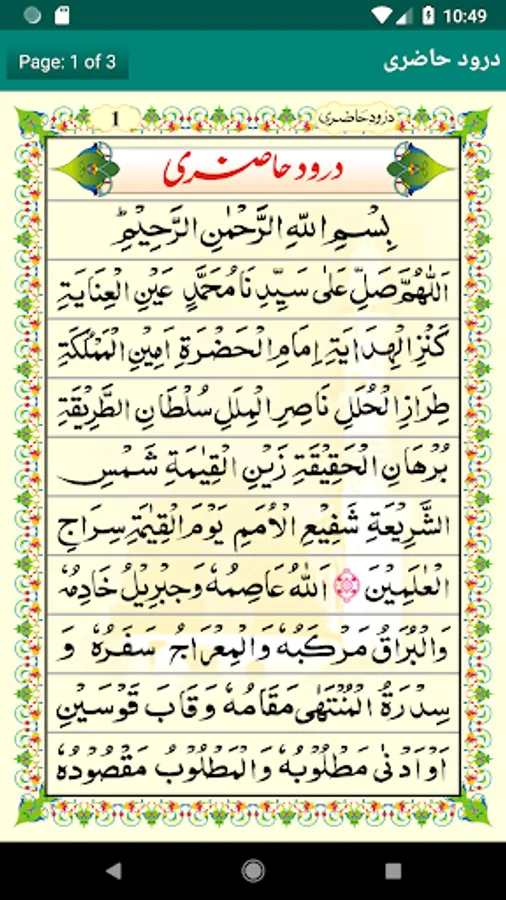 10:49
درود حاضری
Page: 1 of 3
درود حاضری
1
درود حاضری
بِسْمِ اللّٰهِ الرَّحْمٰنِ الرَّحِيْمِ
اَللّٰهُمَّ صَلِّ عَلٰى سَيِّدِنَا مُحَمَّدٍ عَيْنِ الْعِنَايَةِ
كَنْزِ الْهِدَايَةِ اِمَامِ الْحَضْرَةِ اَمِيْنِ الْمَمْلَكَةِ
طِرَازِ الْحُلَلِ نَاصِرِ الْمِلَلِ سُلْطَانِ الطَّرِيْقَةِ
بُرْهَانِ الْحَقِيْقَةِ زَيْنِ الْقِيٰمَةِ شَمْسِ
الشَّرِيْعَةِ شَفِيْعِ الْاُمَمِ يَوْمَ الْقِيٰمَةِ سِرَاجِ
الْعٰلَمِيْنَ اَللّٰهُ عَاصِمُهٗ وَجِبْرِيْلُ خَادِمُهٗ
وَالْبُرَاقُ مَرْكَبُهٗ وَالْمِعْرَاجُ سَفَرُهٗ وَ
سِدْرَةُ الْمُنْتَهٰى مَقَامُهٗ وَقَابَ قَوْسَيْنِ
اَوْاَدْنٰى مَطْلُوْبُهٗ وَالْمَطْلُوْبُ مَقْصُوْدُهٗ